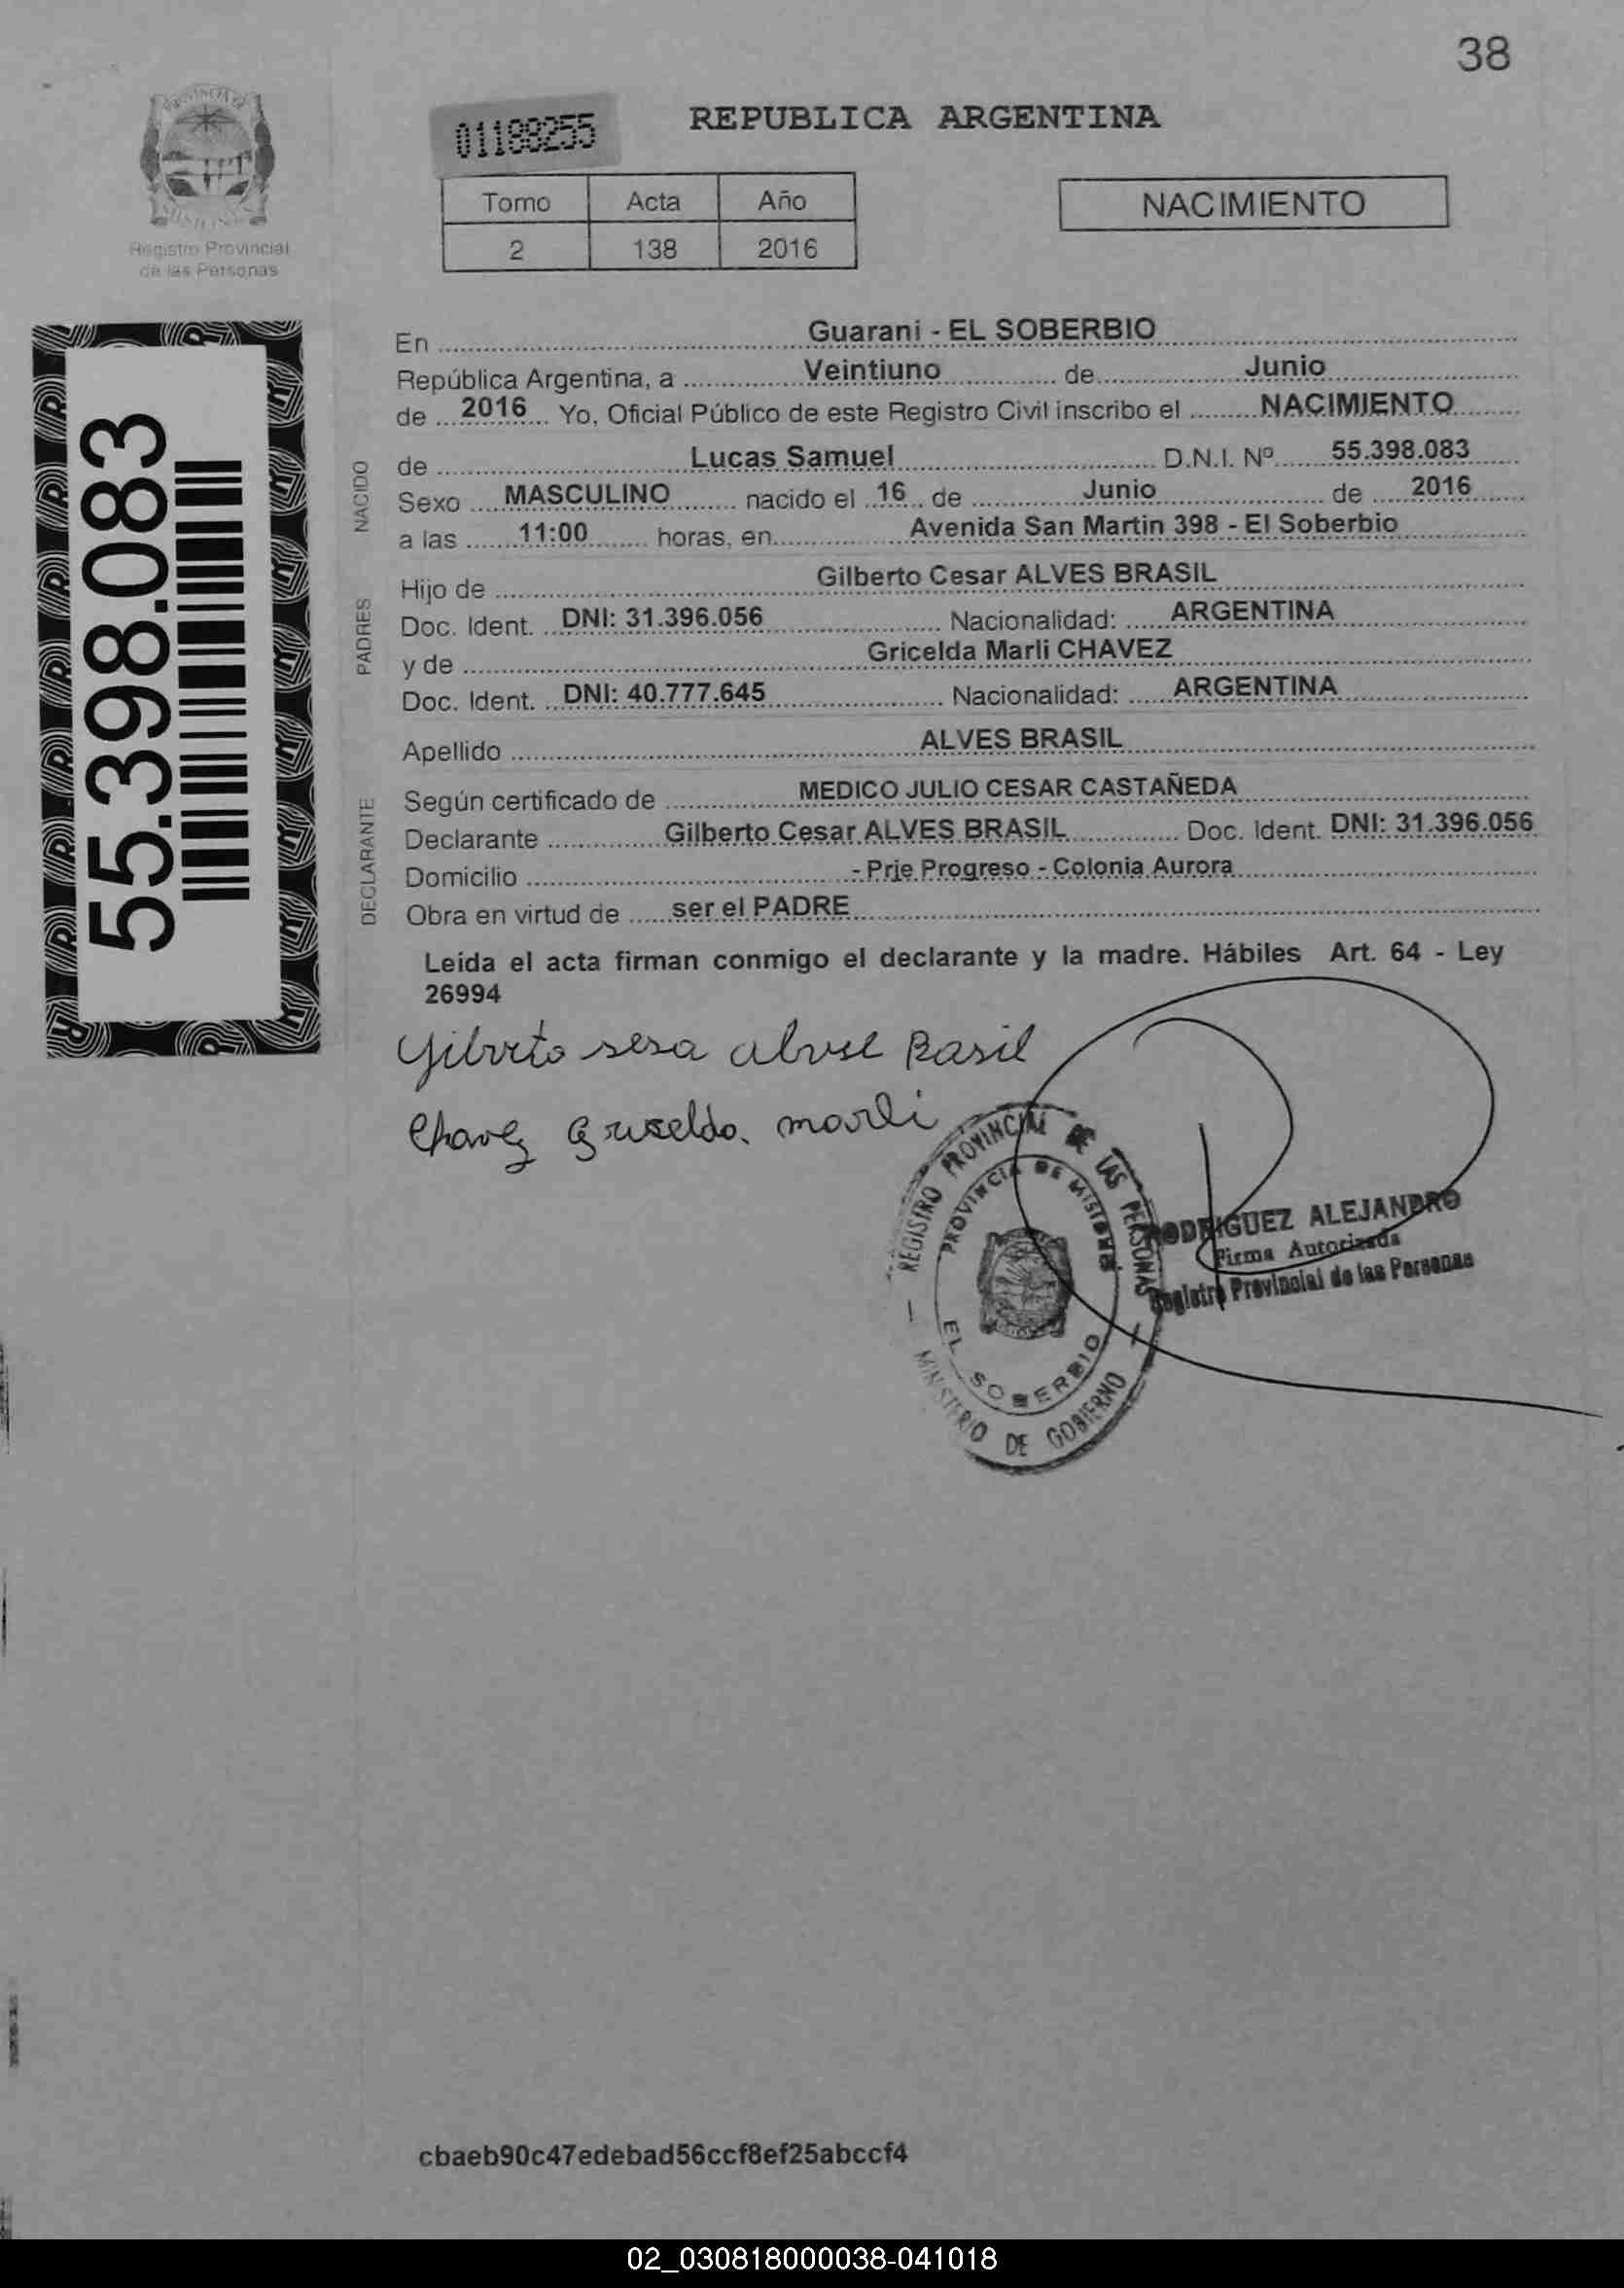 38
PROVINCIA DE
MISIONES
Registro Provincial
de las Personas
01188255
REPUBLICA ARGENTINA
Tomo Acta Año
2 138 2016
NACIMIENTO
55.398.083
En Guarani - EL SOBERBIO
República Argentina, a Veintiuno de Junio
de 2016 Yo, Oficial Público de este Registro Civil inscribo el NACIMIENTO
NACIDO
de Lucas Samuel D.N.I. Nº 55.398.083
Sexo MASCULINO nacido el 16 de Junio de 2016
a las 11:00 horas, en Avenida San Martin 398 - El Soberbio
PADRES
Hijo de Gilberto Cesar ALVES BRASIL
Doc. Ident. DNI: 31.396.056 Nacionalidad: ARGENTINA
y de Gricelda Marli CHAVEZ
Doc. Ident. DNI: 40.777.645 Nacionalidad: ARGENTINA
Apellido ALVES BRASIL
DECLARANTE
Según certificado de MEDICO JULIO CESAR CASTAÑEDA
Declarante Gilberto Cesar ALVES BRASIL Doc. Ident. DNI: 31.396.056
Domicilio - Prje Progreso - Colonia Aurora
Obra en virtud de ser el PADRE
Leída el acta firman conmigo el declarante y la madre. Hábiles Art. 64 - Ley
26994
Chavez Griselda marli
REGISTRO PROVINCIAL DE LAS PERSONAS
PROVINCIA DE MISIONES
EL SOBERBIO
MINISTERIO DE GOBIERNO
RODRIGUEZ ALEJANDRO
Firma Autorizada
Registro Provincial de las Personas
cbaeb90c47edebad56ccf8ef25abccf4
02_030818000038-041018